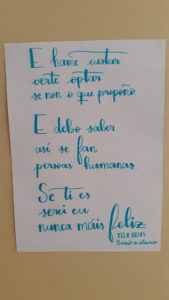 E hame custar
verte optar
se non o que propoño
E debo saber
así se fan
persoas humanas.
Se ti es
serei eu
nunca máis feliz
XELA ARIAS